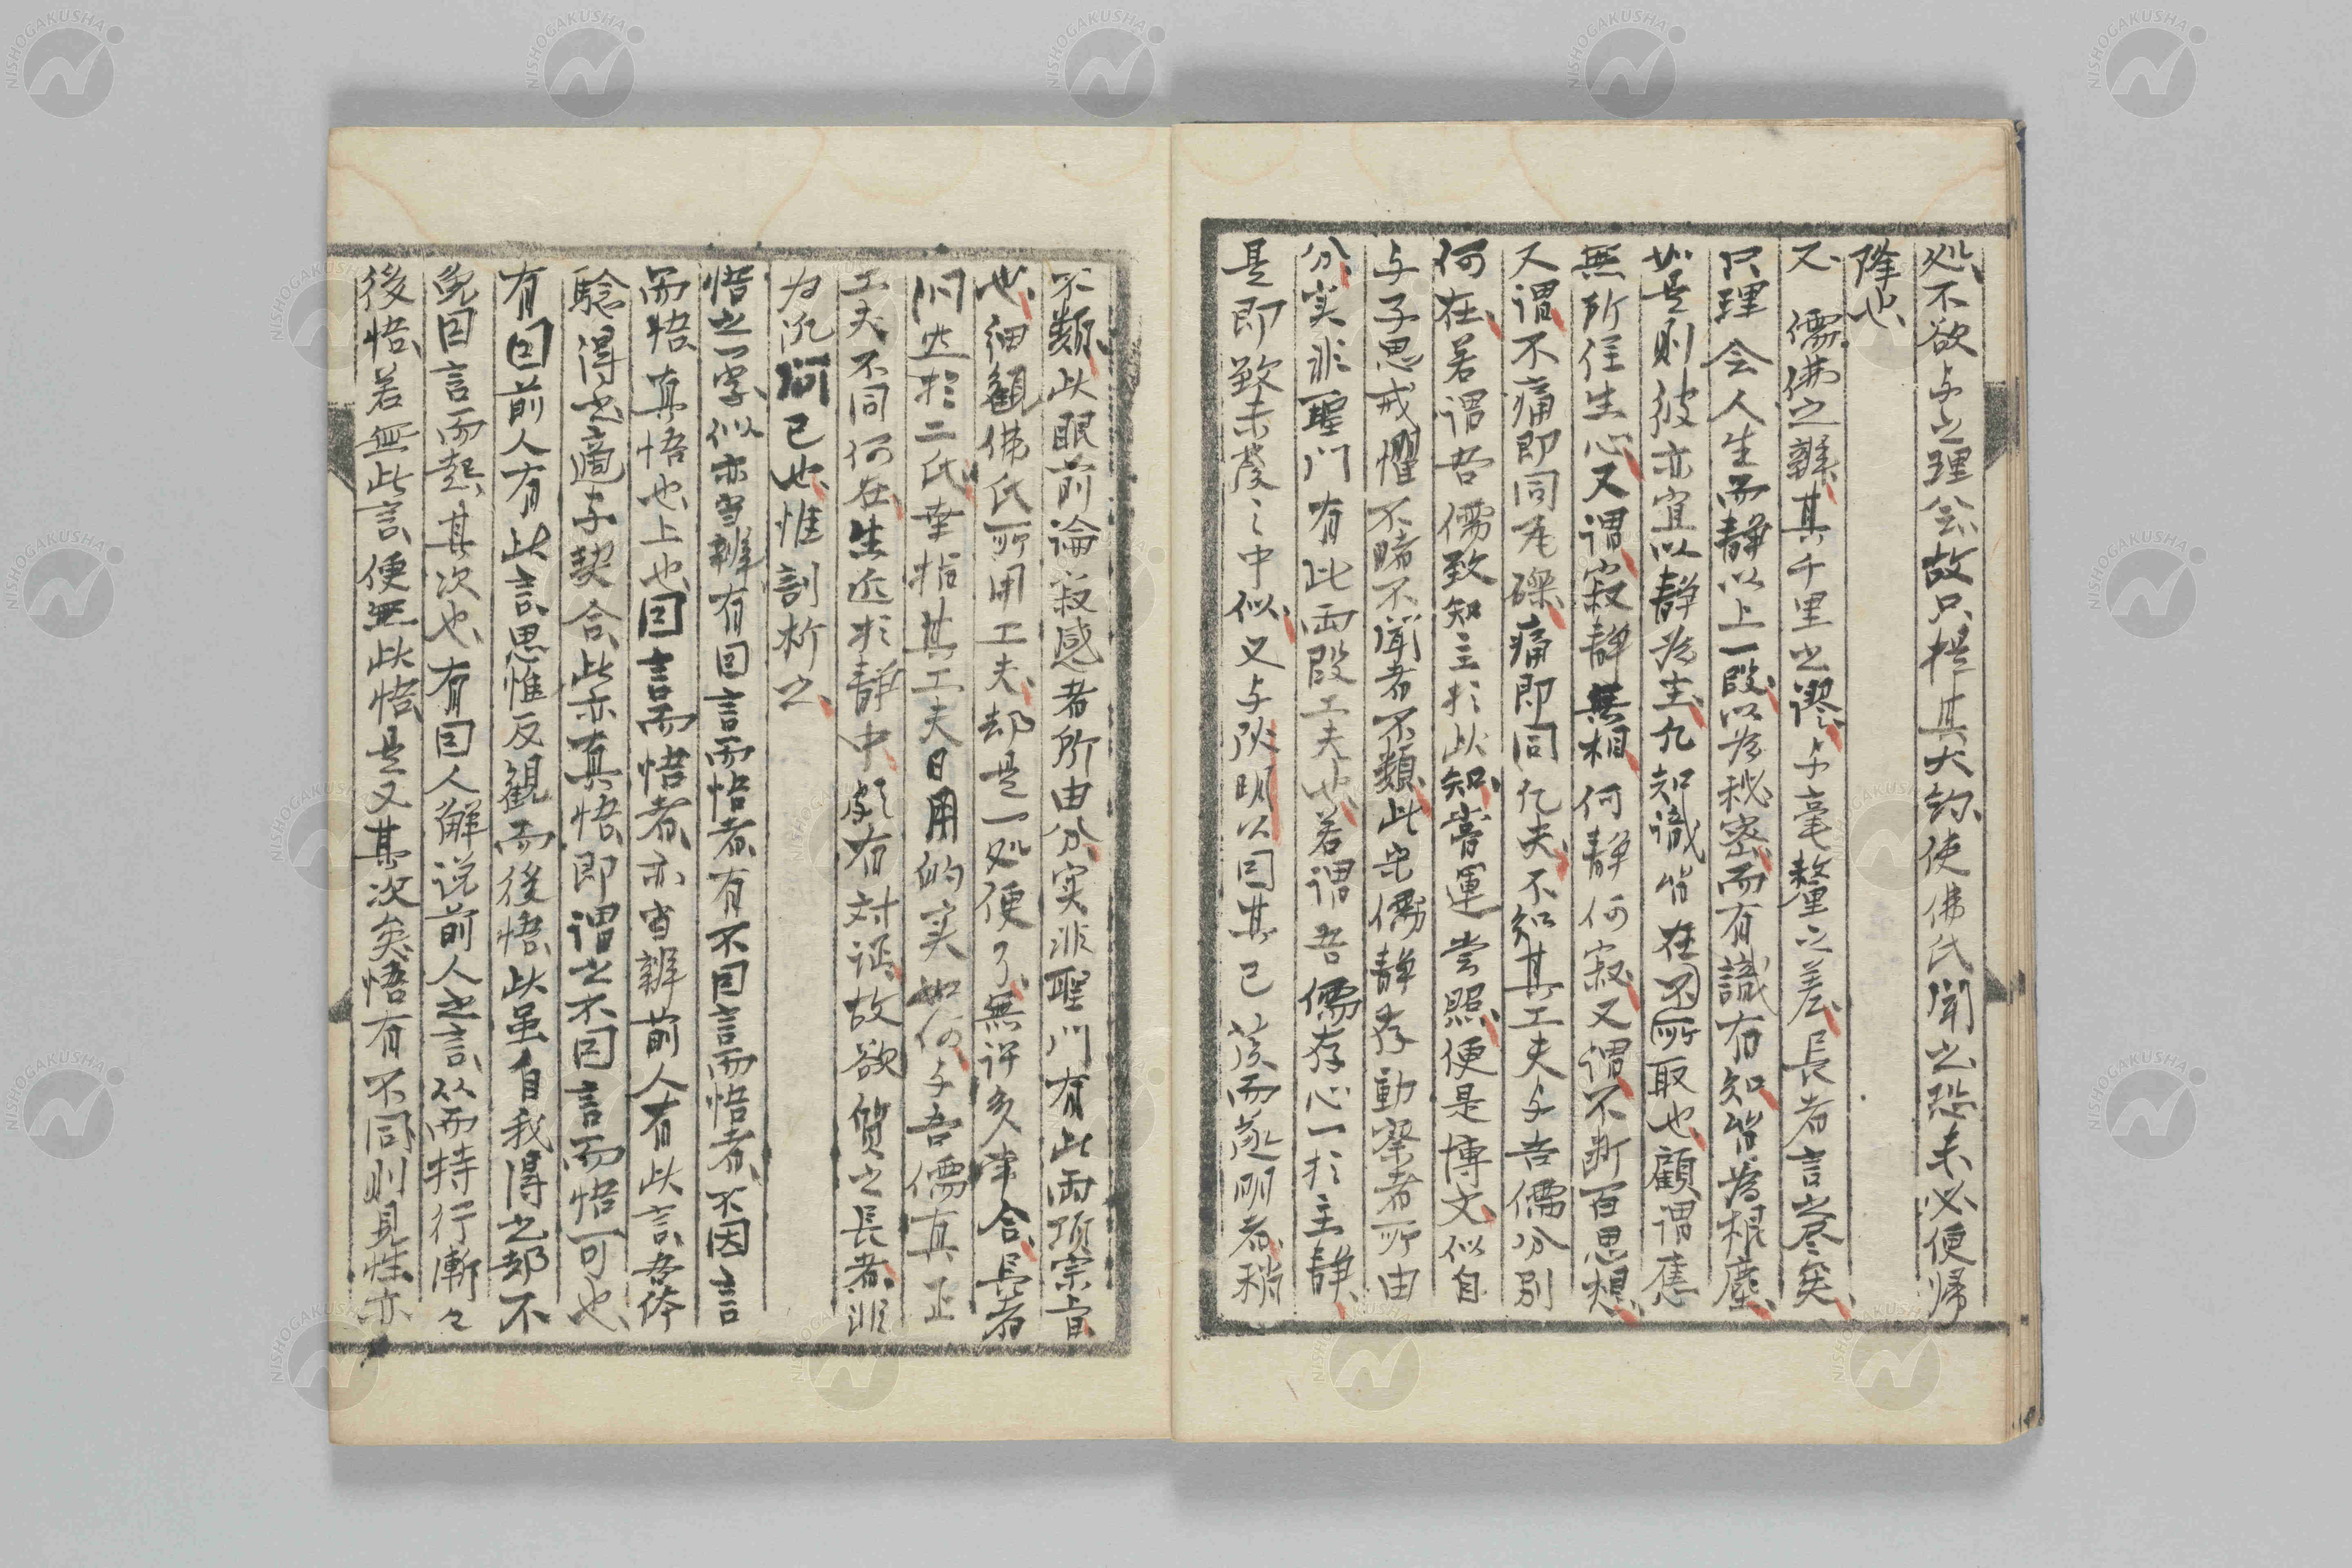 処不欲与之理会故只挹其大約使佛氏聞之恐未必便帰
降也
又 儒佛之辨其千里之謬与毫釐之差長者言之尽矣
只理会人生而静以上一段以為秘密而有識有知皆為根塵
如是則彼亦宜以静為主凡知識皆在不所取也顧謂應
無所住生心又謂寂静無相何静何寂又謂不断百思想
又謂不痛即同瓦礫痛即同凡夫不知其工夫与吾儒分別
何在若謂吾儒致知主於此知嘗運嘗照便是博文似自
与子思戒懼不睹不聞者不類此宋儒静存動察者所由
分実非聖門有此両段工夫也若謂吾儒存心一於主静
是即致未發之中似又与陽明以因其已發而遂明者稍
不類此眼前論寂感者所由分実非聖門有此両頂宗旨
也細観佛氏所用工夫却是一処便了無許多牽合長者
問迷於二氏幸指其工夫日用的実如何与吾儒真正
工夫不同何在生近於静中頗有対証故欲質之長者非
為汎問已也惟剖析之
悟之一字似亦当辨有因言而悟者有不因言而悟者不因言
而悟真悟也上也因言而悟者亦当辨前人有此言吾体
驗得之適与契合此亦真悟即謂之不因言而悟可也
有因前人有此言思惟反観而後悟此虽自我得之却不
免因言而起其次也有因人解説前人之言从而持行漸々
後悟若無此言便無此悟是又其次矣悟有不同則見性亦